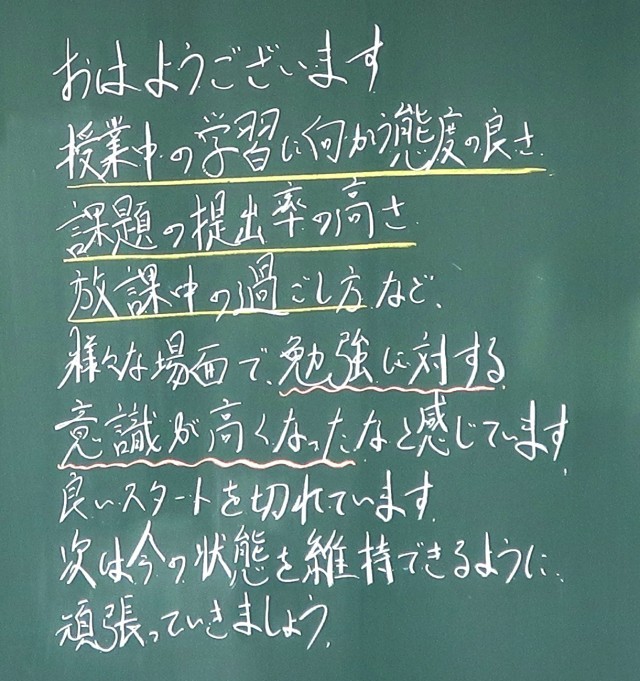 おはようございます
授業中の学習に向かう態度の良さ
課題の提出率の高さ
放課中の過ごし方など、
様々な場面で、勉強に対する
意識が高くなったなと感じています。
良いスタートを切れています。
次は今の状態を維持できるように、
頑張っていきましょう。